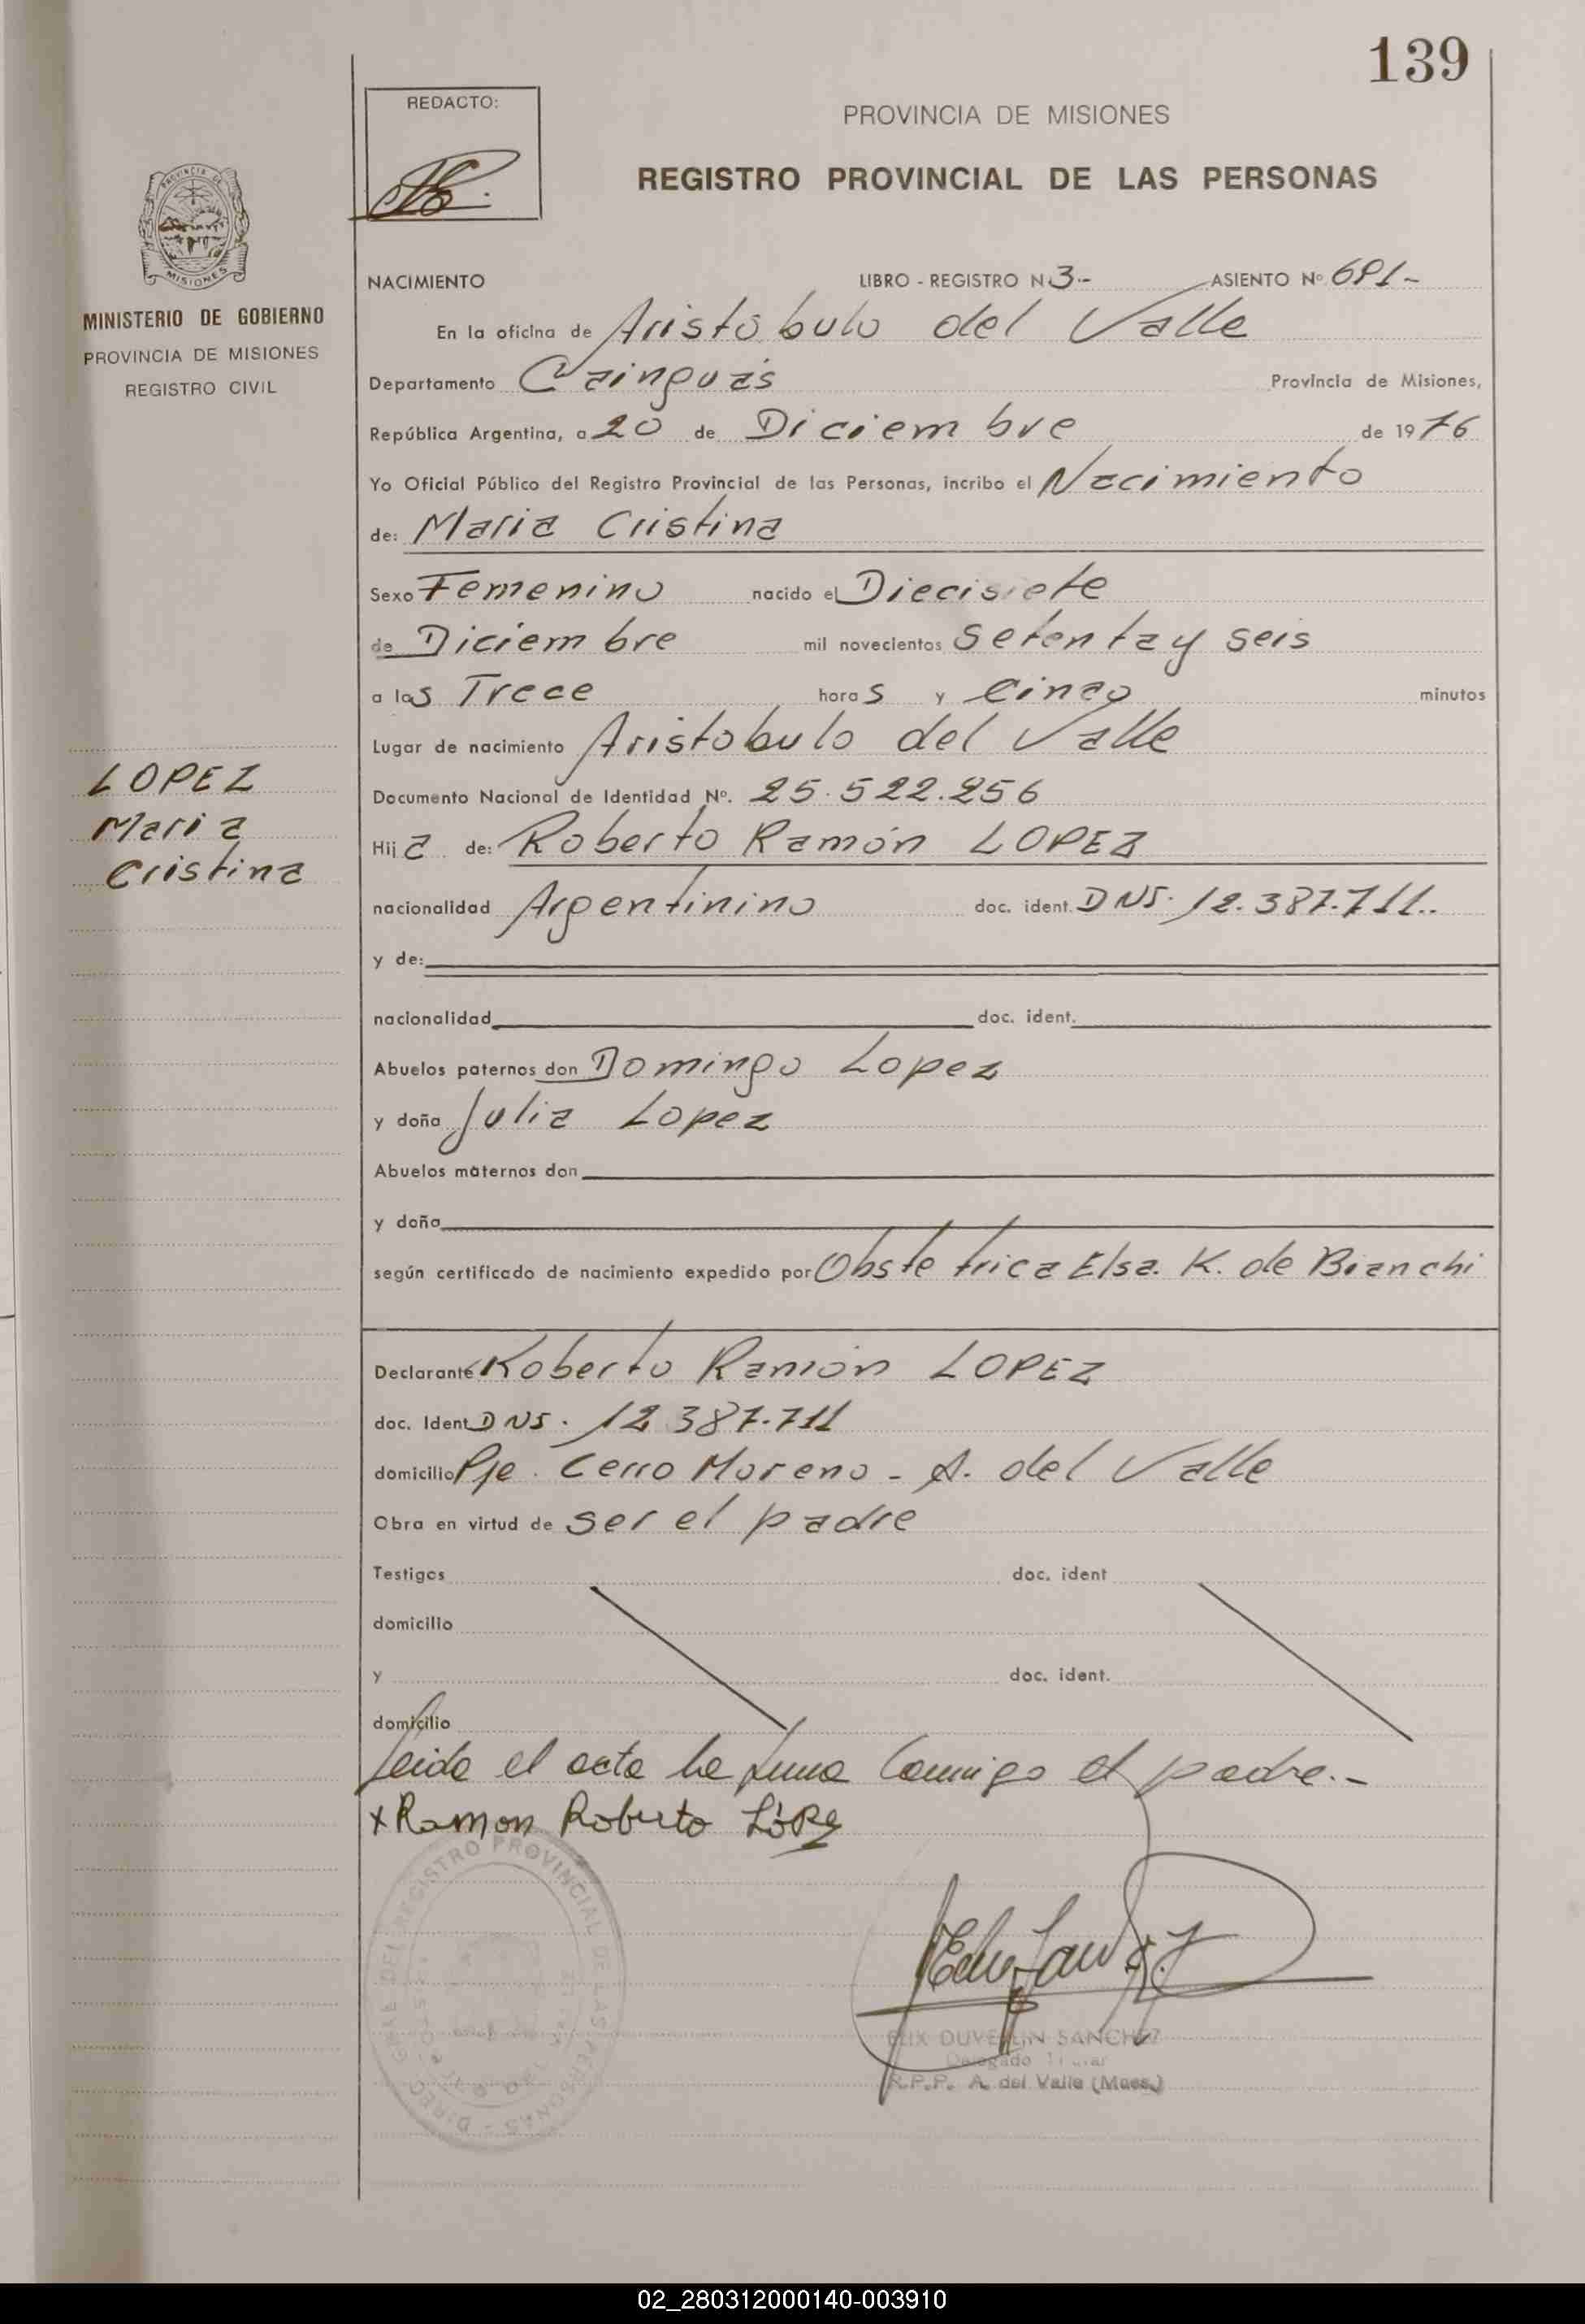 139
REDACTO:
PROVINCIA DE MISIONES
REGISTRO PROVINCIAL DE LAS PERSONAS
PROVINCIA DE
MISIONES
MINISTERIO DE GOBIERNO
PROVINCIA DE MISIONES
REGISTRO CIVIL
NACIMIENTO LIBRO - REGISTRO N 3.- ASIENTO Nº 691-
En la oficina de Aristóbulo del Valle
Departamento Cainguás Provincia de Misiones,
República Argentina, a 20 de Diciembre de 1976
Yo Oficial Público del Registro Provincial de las Personas, incribo el Nacimiento
de: Maria Cristina
Sexo Femenino nacido el Diecisiete
de Diciembre mil novecientos setenta y seis
a las Trece horas y Cinco minutos
Lugar de nacimiento Aristobulo del Valle
LOPEZ
Maria
Cristina
Documento Nacional de Identidad Nº. 25.522.256
Hija de: Roberto Ramón LOPEZ
nacionalidad Argentinino doc. ident. DNI. 12.387.711..
y de:
nacionalidad doc. ident.
Abuelos paternos don Domingo Lopez
y doña Julia Lopez
Abuelos maternos don
y doña
según certificado de nacimiento expedido por Obstetrica Elsa. K. de Bianchi
Declarante Roberto Ramón LOPEZ
doc. Ident DNI. 12.387.711
domicilio Pje. Cerro Moreno - A. del Valle
Obra en virtud de ser el padre
Testigos doc. ident
domicilio
y doc. ident.
domicilio
Leida el acta la firma conmigo el padre.-
x Ramon Roberto López
REGISTRO PROVINCIAL DE LAS PERSONAS
DUVE SANCHEZ
Delegado Titular
R.P.P. A. del Valle (Mnes.)
02_280312000140-003910